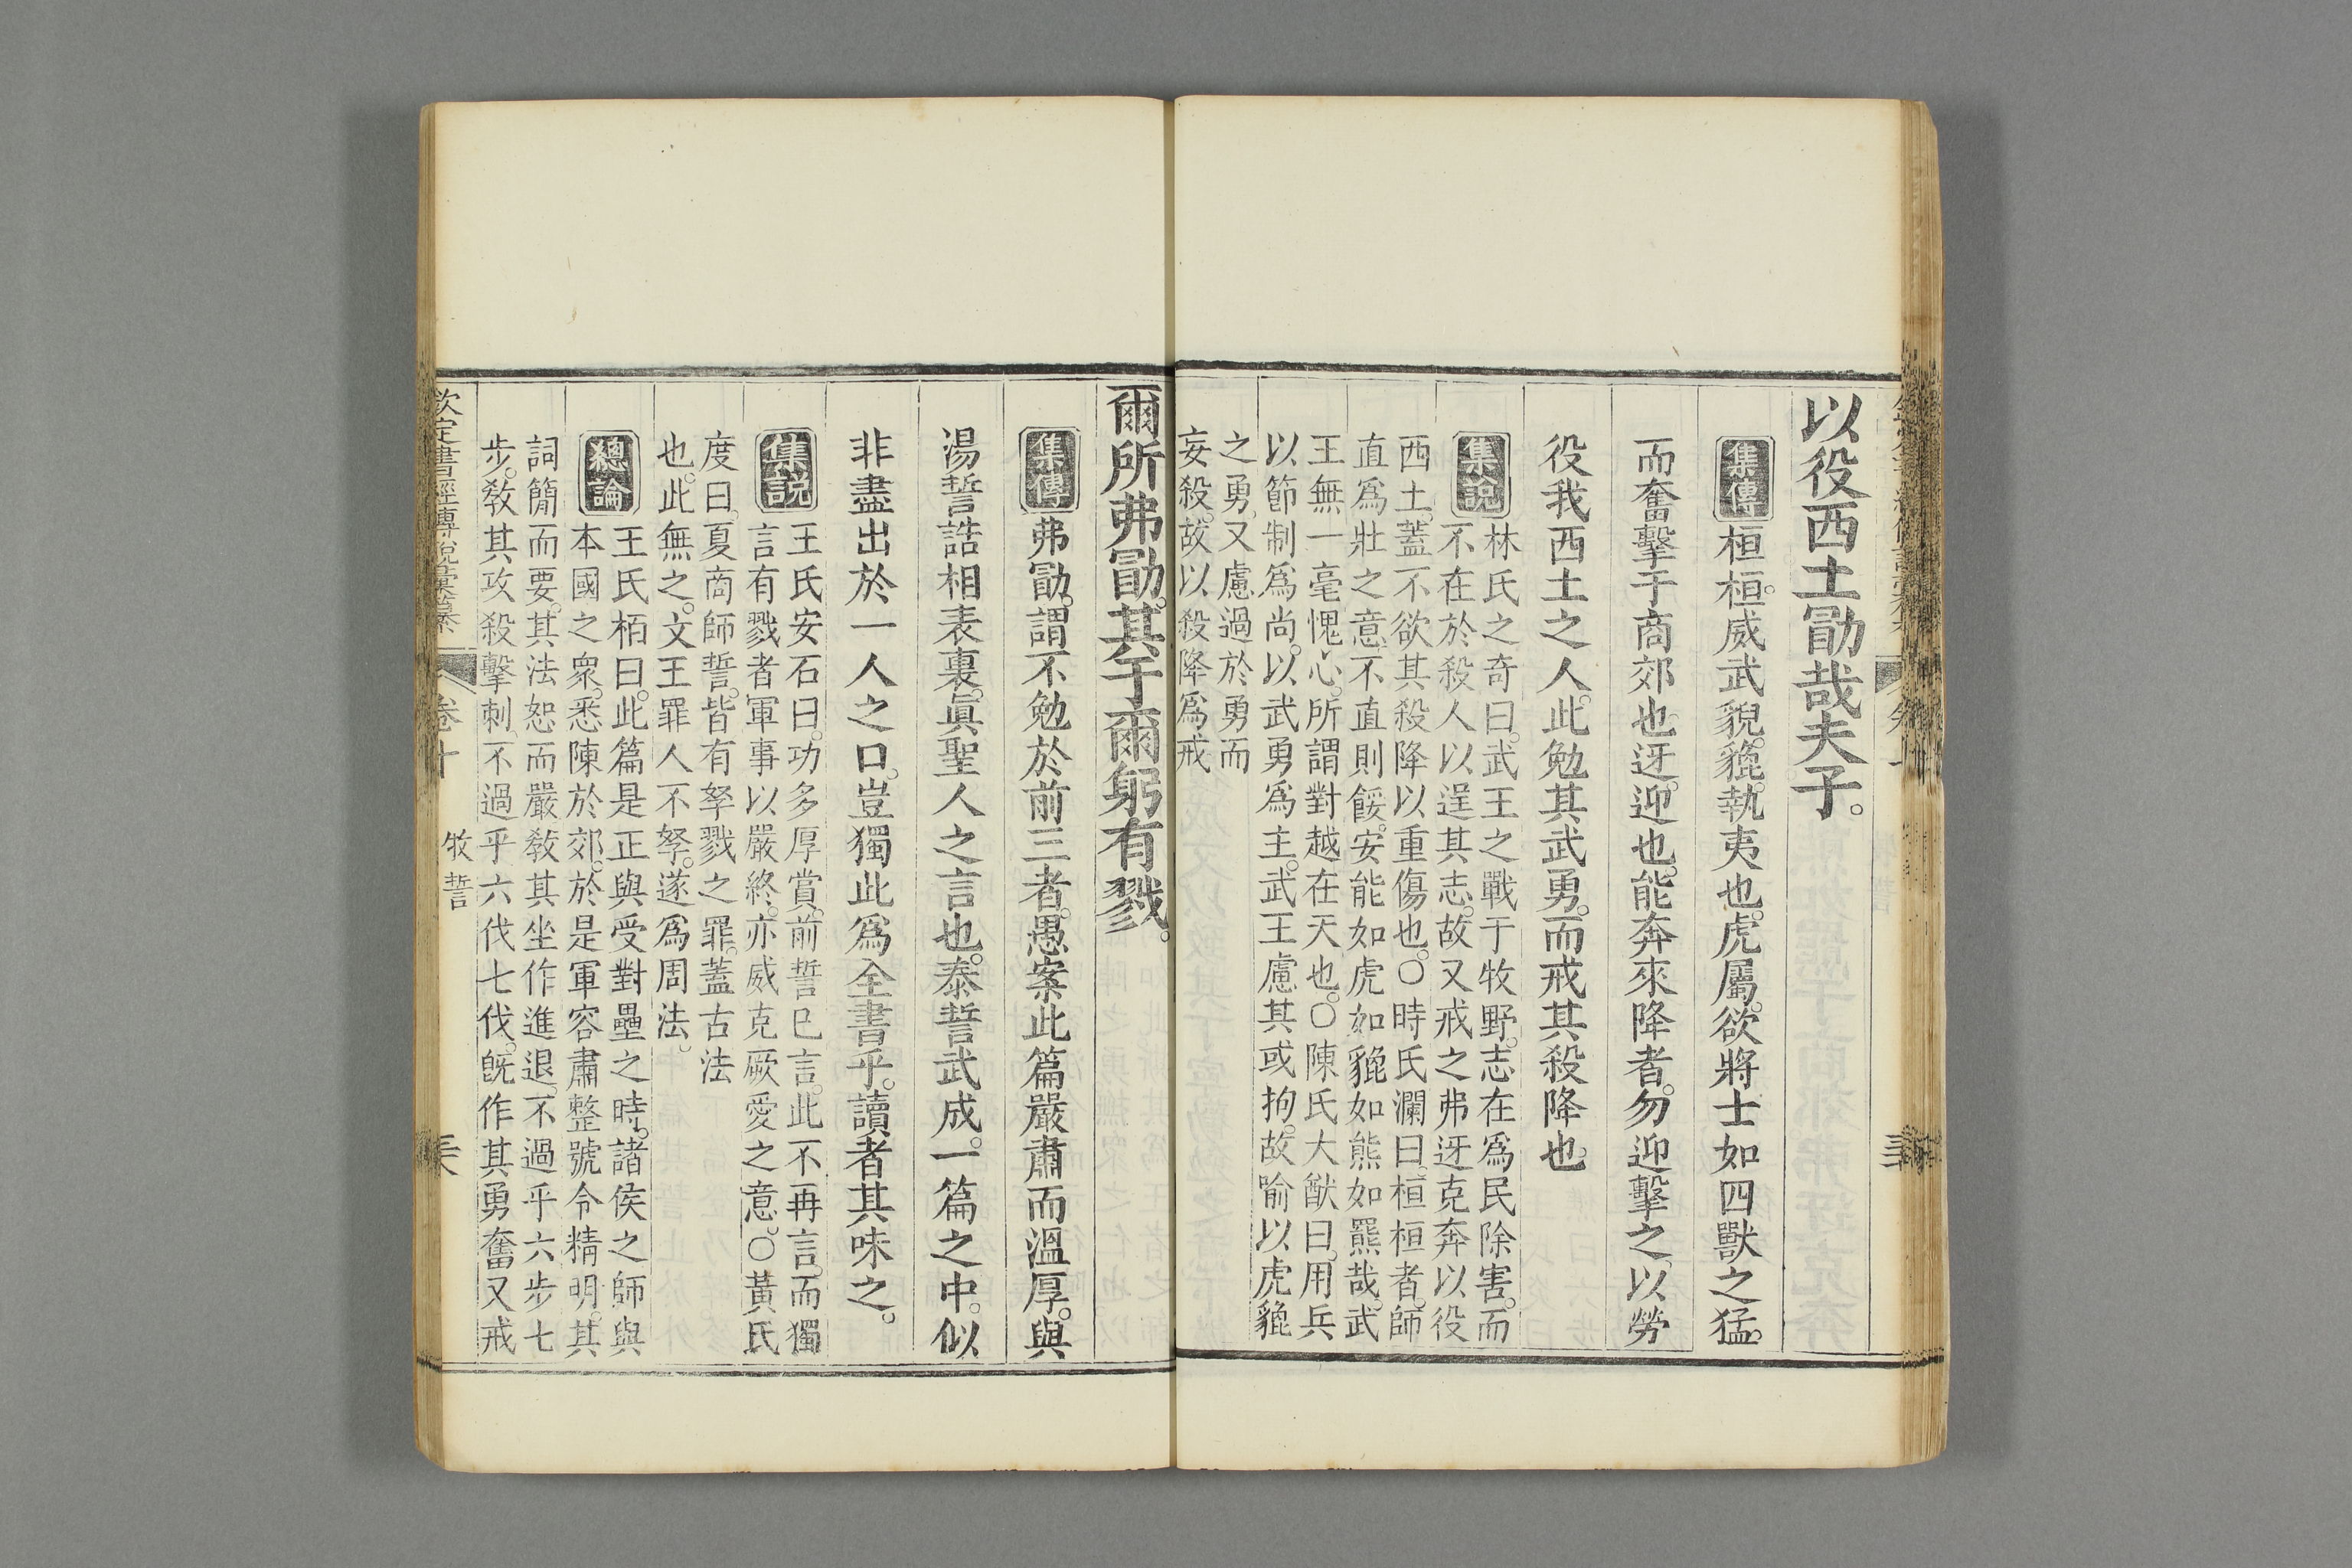 以役西土勖哉夫子。
集傳 桓桓。威武貌。貔。執夷也。虎屬。欲將士如四獸之猛。
而奮擊于商郊也。迓。迎也。能奔來降者。勿迎擊之。以勞
役我西土之人。此勉其武勇。而戒其殺降也。
集說 林氏之奇曰。武王之戰于牧野。志在爲民除害。而
不在於殺人以逞其志。故又戒之弗迓克奔以役
西土。蓋不欲其殺降以重傷也。○時氏瀾曰。桓桓者。師
直爲壯之意。不直則餒。安能如虎如貔如熊如羆哉。武
王無一毫愧心。所謂對越在天也。○陳氏大猷曰。用兵
以節制爲尚。以武勇爲主。武王慮其或拘。故喻以虎貔
之勇。又慮過於勇而
妄殺。故以殺降爲戒
爾所弗勖。其于爾躬有戮。
集傳 弗勖。謂不勉於前三者。愚案此篇嚴肅而溫厚。與
湯誓誥相表裏。眞聖人之言也。泰誓武成。一篇之中。似
非盡出於一人之口。豈獨此爲全書乎。讀者其味之。
集說 王氏安石曰。功多厚賞。前誓已言。此不再言。而獨
言有戮者軍事以嚴終。亦威克厥愛之意。○黃氏
度曰。夏商師誓。皆有孥戮之罪。蓋古法
也。此無之。文王罪人不孥。遂爲周法。
總論 王氏栢曰。此篇是正與受對壘之時。諸侯之師與
本國之衆。悉陳於郊。於是軍容肅整號令精明。其
詞簡而要。其法恕而嚴敎其坐作進退。不過乎六步七
步。敎其攻殺擊刺。不過乎六伐七伐。旣作其勇奮又戒
欽定書經傳說彙纂 卷十 牧誓